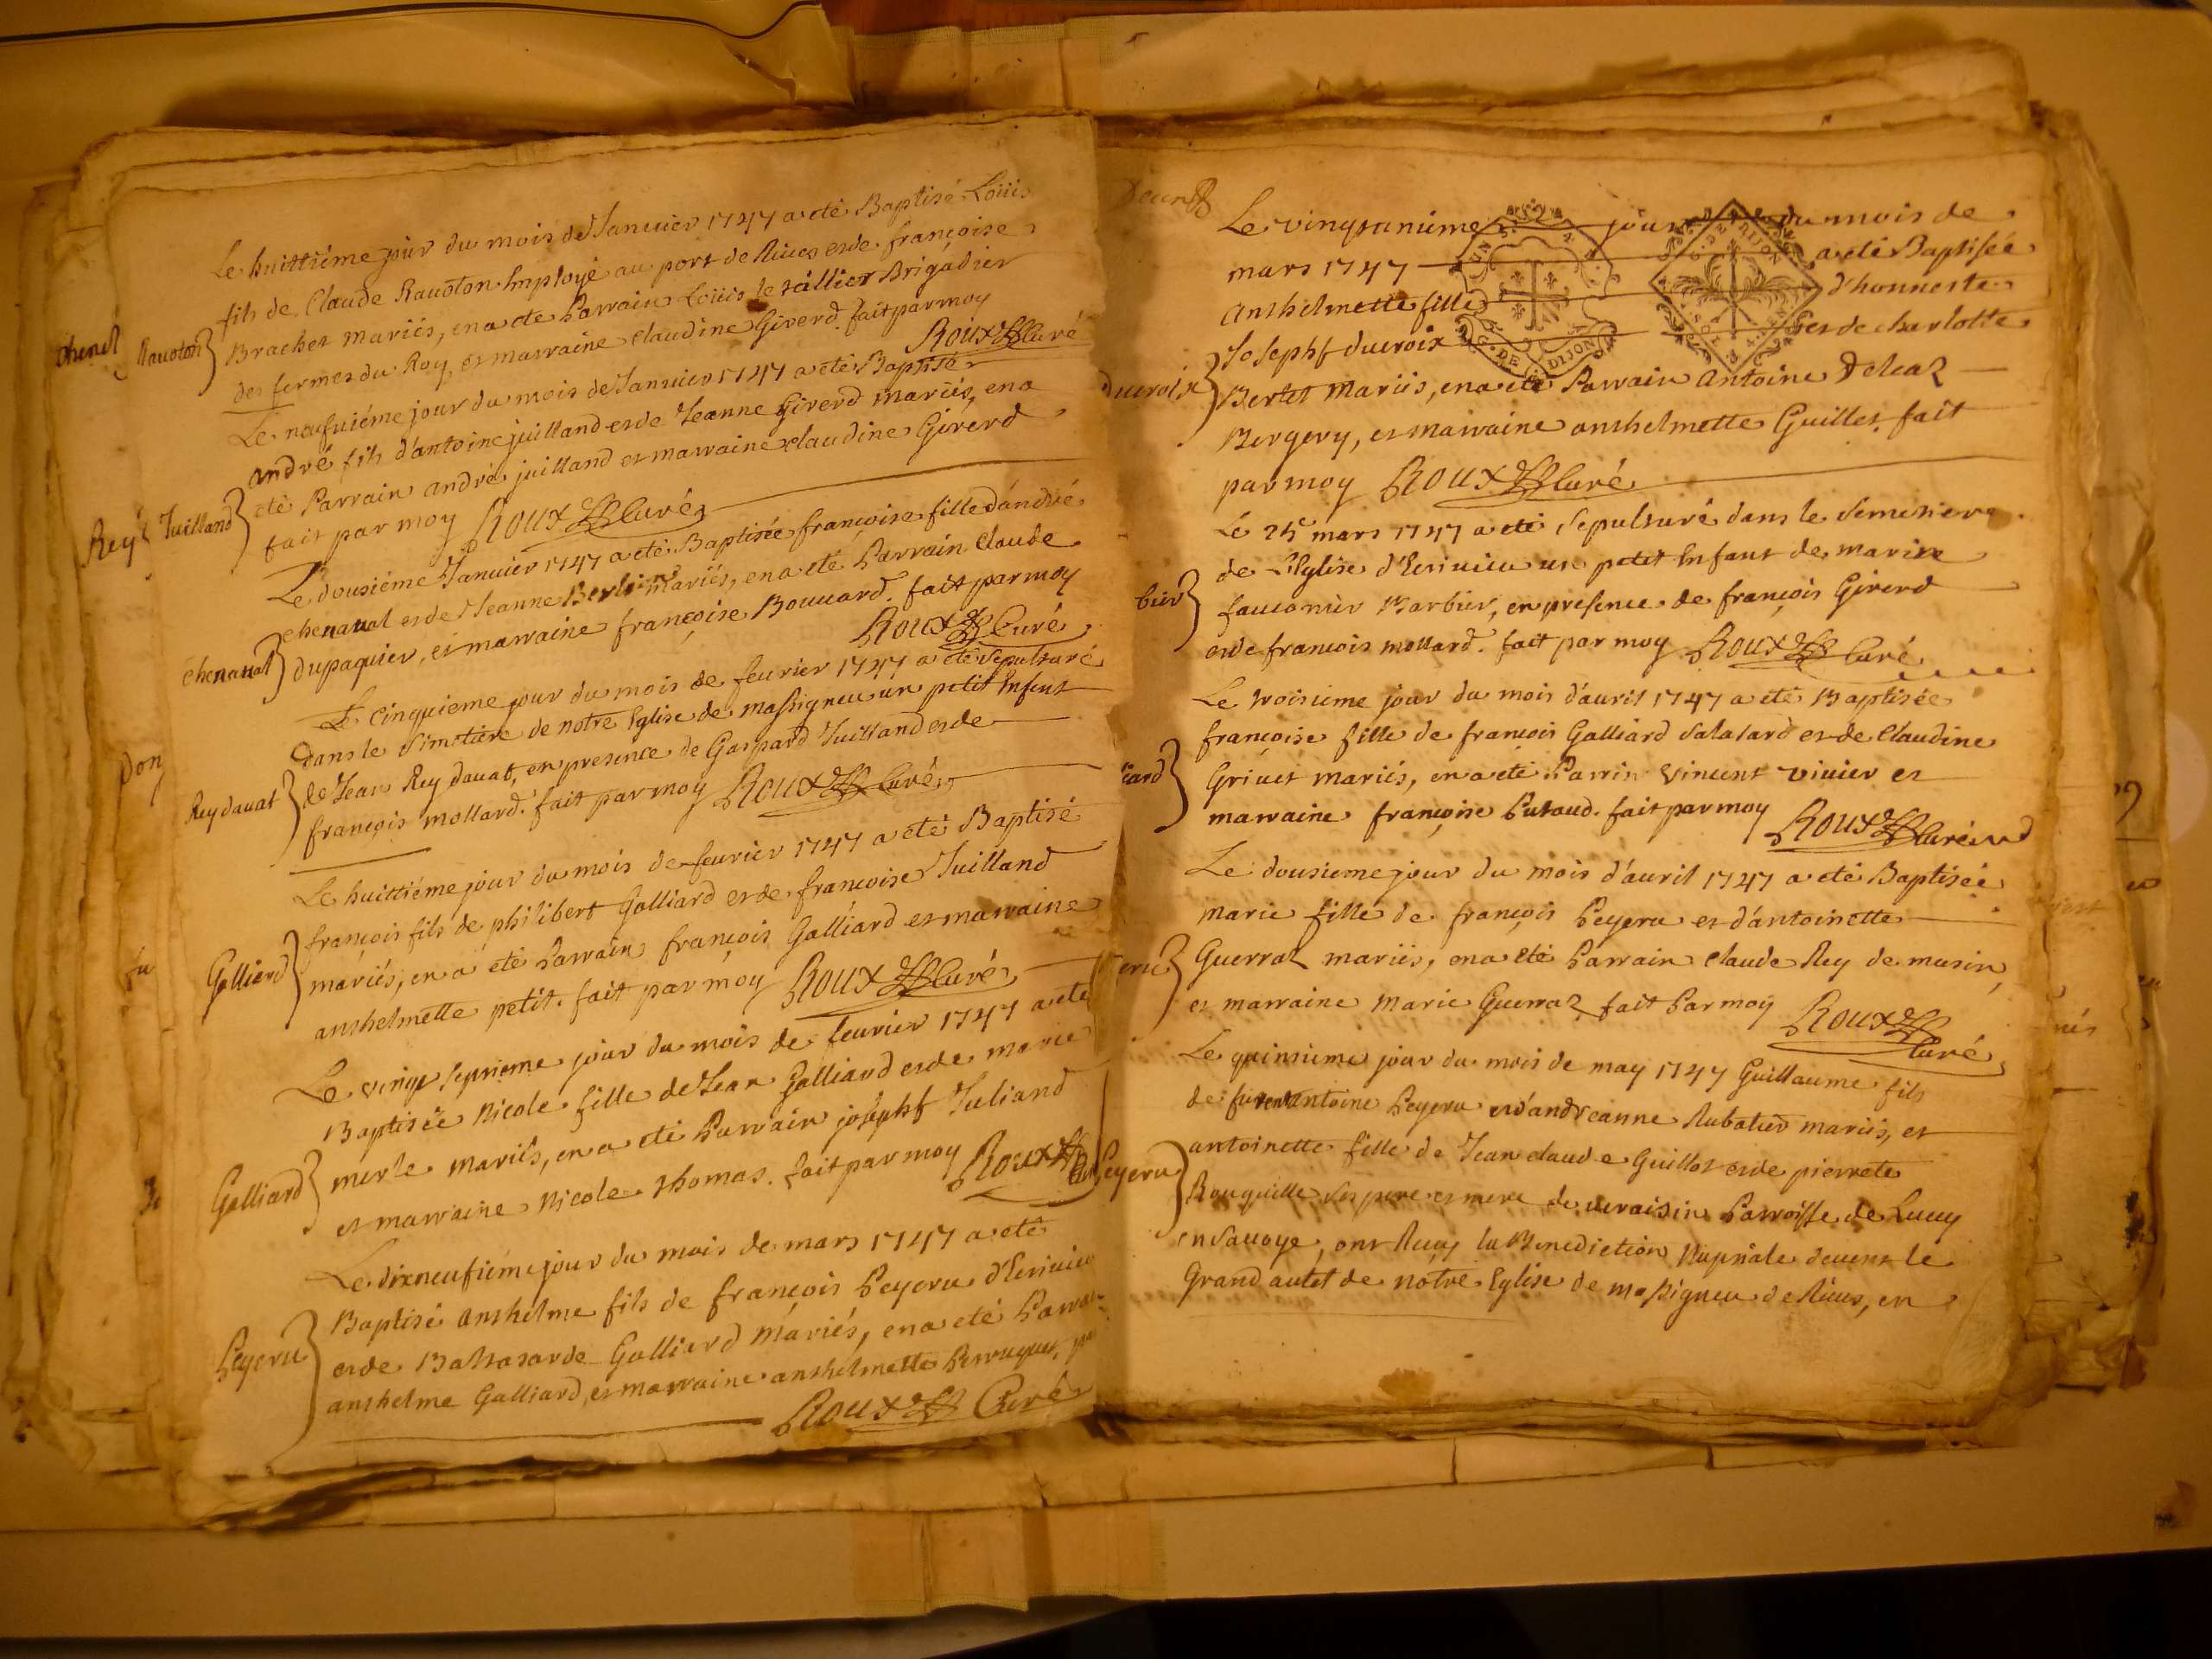 Le huittiéme jour du mois de Januier 1747 a eté Baptisé Loüis
fils de Claude Rauoton Employé au port de Riues et de françoise
Rauoton
Brachet mariés, en a eté Parrain Loüis le tallier Brigadier
des fermes du Roy, et marraine Claudine Girerd. fait par moy
Roux Curé
Le neufuiéme jour du mois de Januier 1747 a eté Baptisé
andré fils d'antoine juilland et de Jeanne Girerd mariés, en a
Juilland
eté Parrain andré juilland et marraine claudine Girerd
fait par moy Roux Curé
Le dousiéme Januier 1747 a eté Baptisée françoise fille d'andré
chenaual et de Jeanne Berlio mariés, en a eté Parrain Claude
chenaual
dupaquier, et marraine françoise Bouuard. fait par moy
Roux Curé
Le Cinquieme jour du mois de feurier 1747 a eté Sepulturé
Dans le Simetiere de notre Eglise de massigneu un petit Enfent
Rey dauat
de Jean Rey dauat, en presence de Gaspard Juilland et de
françois mollard. fait par moy Roux Curé
Le huittiéme jour du mois de feurier 1747 a eté Baptisé
françois fils de philibert Galliard et de françoise Juilland
Galliard
mariés, en a eté Parrain françois Galliard et marraine
anthelmette petit. fait par moy Roux Curé
Le vingt Septieme jour du mois de feurier 1747 a eté
Baptisée Nicole fille de Jean Galliard et de marie
Galliard
merle mariés, en a eté Parrain josephf Juliand
et marraine Nicole thomas. fait par moy Roux Curé
Le dixneufiéme jour du mois de mars 1747 a eté
Baptisé anthelme fils de françois Peyeru d'Ecriuieu
Peyeru
et de Baltasarde Galliard mariés, en a eté Parrain
anthelme Galliard, et marraine anthelmette Perruquet,
Roux Curé
Le vingtunieme jour du mois de
mars 1747 a eté Baptisée
anthelmette fille d'honneste
Josephf ducroix et de charlotte
ducroix
Bertet Mariés, en a eté Parrain Antoine Deleaz
Bergery, et marraine anthelmette Guillet. fait
par moy Roux Curé
Le 25e mars 1747 a eté Sepulturé dans le Semetiere
de l'Eglise d'Ecriuieu un petit Enfant de marin
bier
fauconnier Barbier, en presence de françois Girerd
et de francois mollard. fait par moy Roux Curé
Le troisieme jour du mois d'auril 1747 a eté Baptisée
françoise fille de françois Galliard Salasard et de Claudine
Griuet mariés, en a eté Parrin Vincent viuier et
marraine françoise Putoud. fait par moy
Roux Curé
Le dousieme jour du mois d'auril 1747 a eté Baptisée
marie fille de françois Peyeru et d'antoinette
Guerraz mariés, en a eté Parrain Claude Rey de musin
et marraine Marie Guerraz fait Par moy
Roux
Curé
Le quinsieme jour du mois de may 1747 Guillaume fils
de antoine Peyeru et d'andreanne Rubatier mariés, et
antoinette fille de Jean claude Guillot et de pierrete
Peyeru
Rouquille Ses pere et mere de veraisin Parroisse de Lucey
en Sauoye, ont Reçu la Benediction Nuptiale deuent le
Grand autel de notre Eglise de massigneu de Riues, en